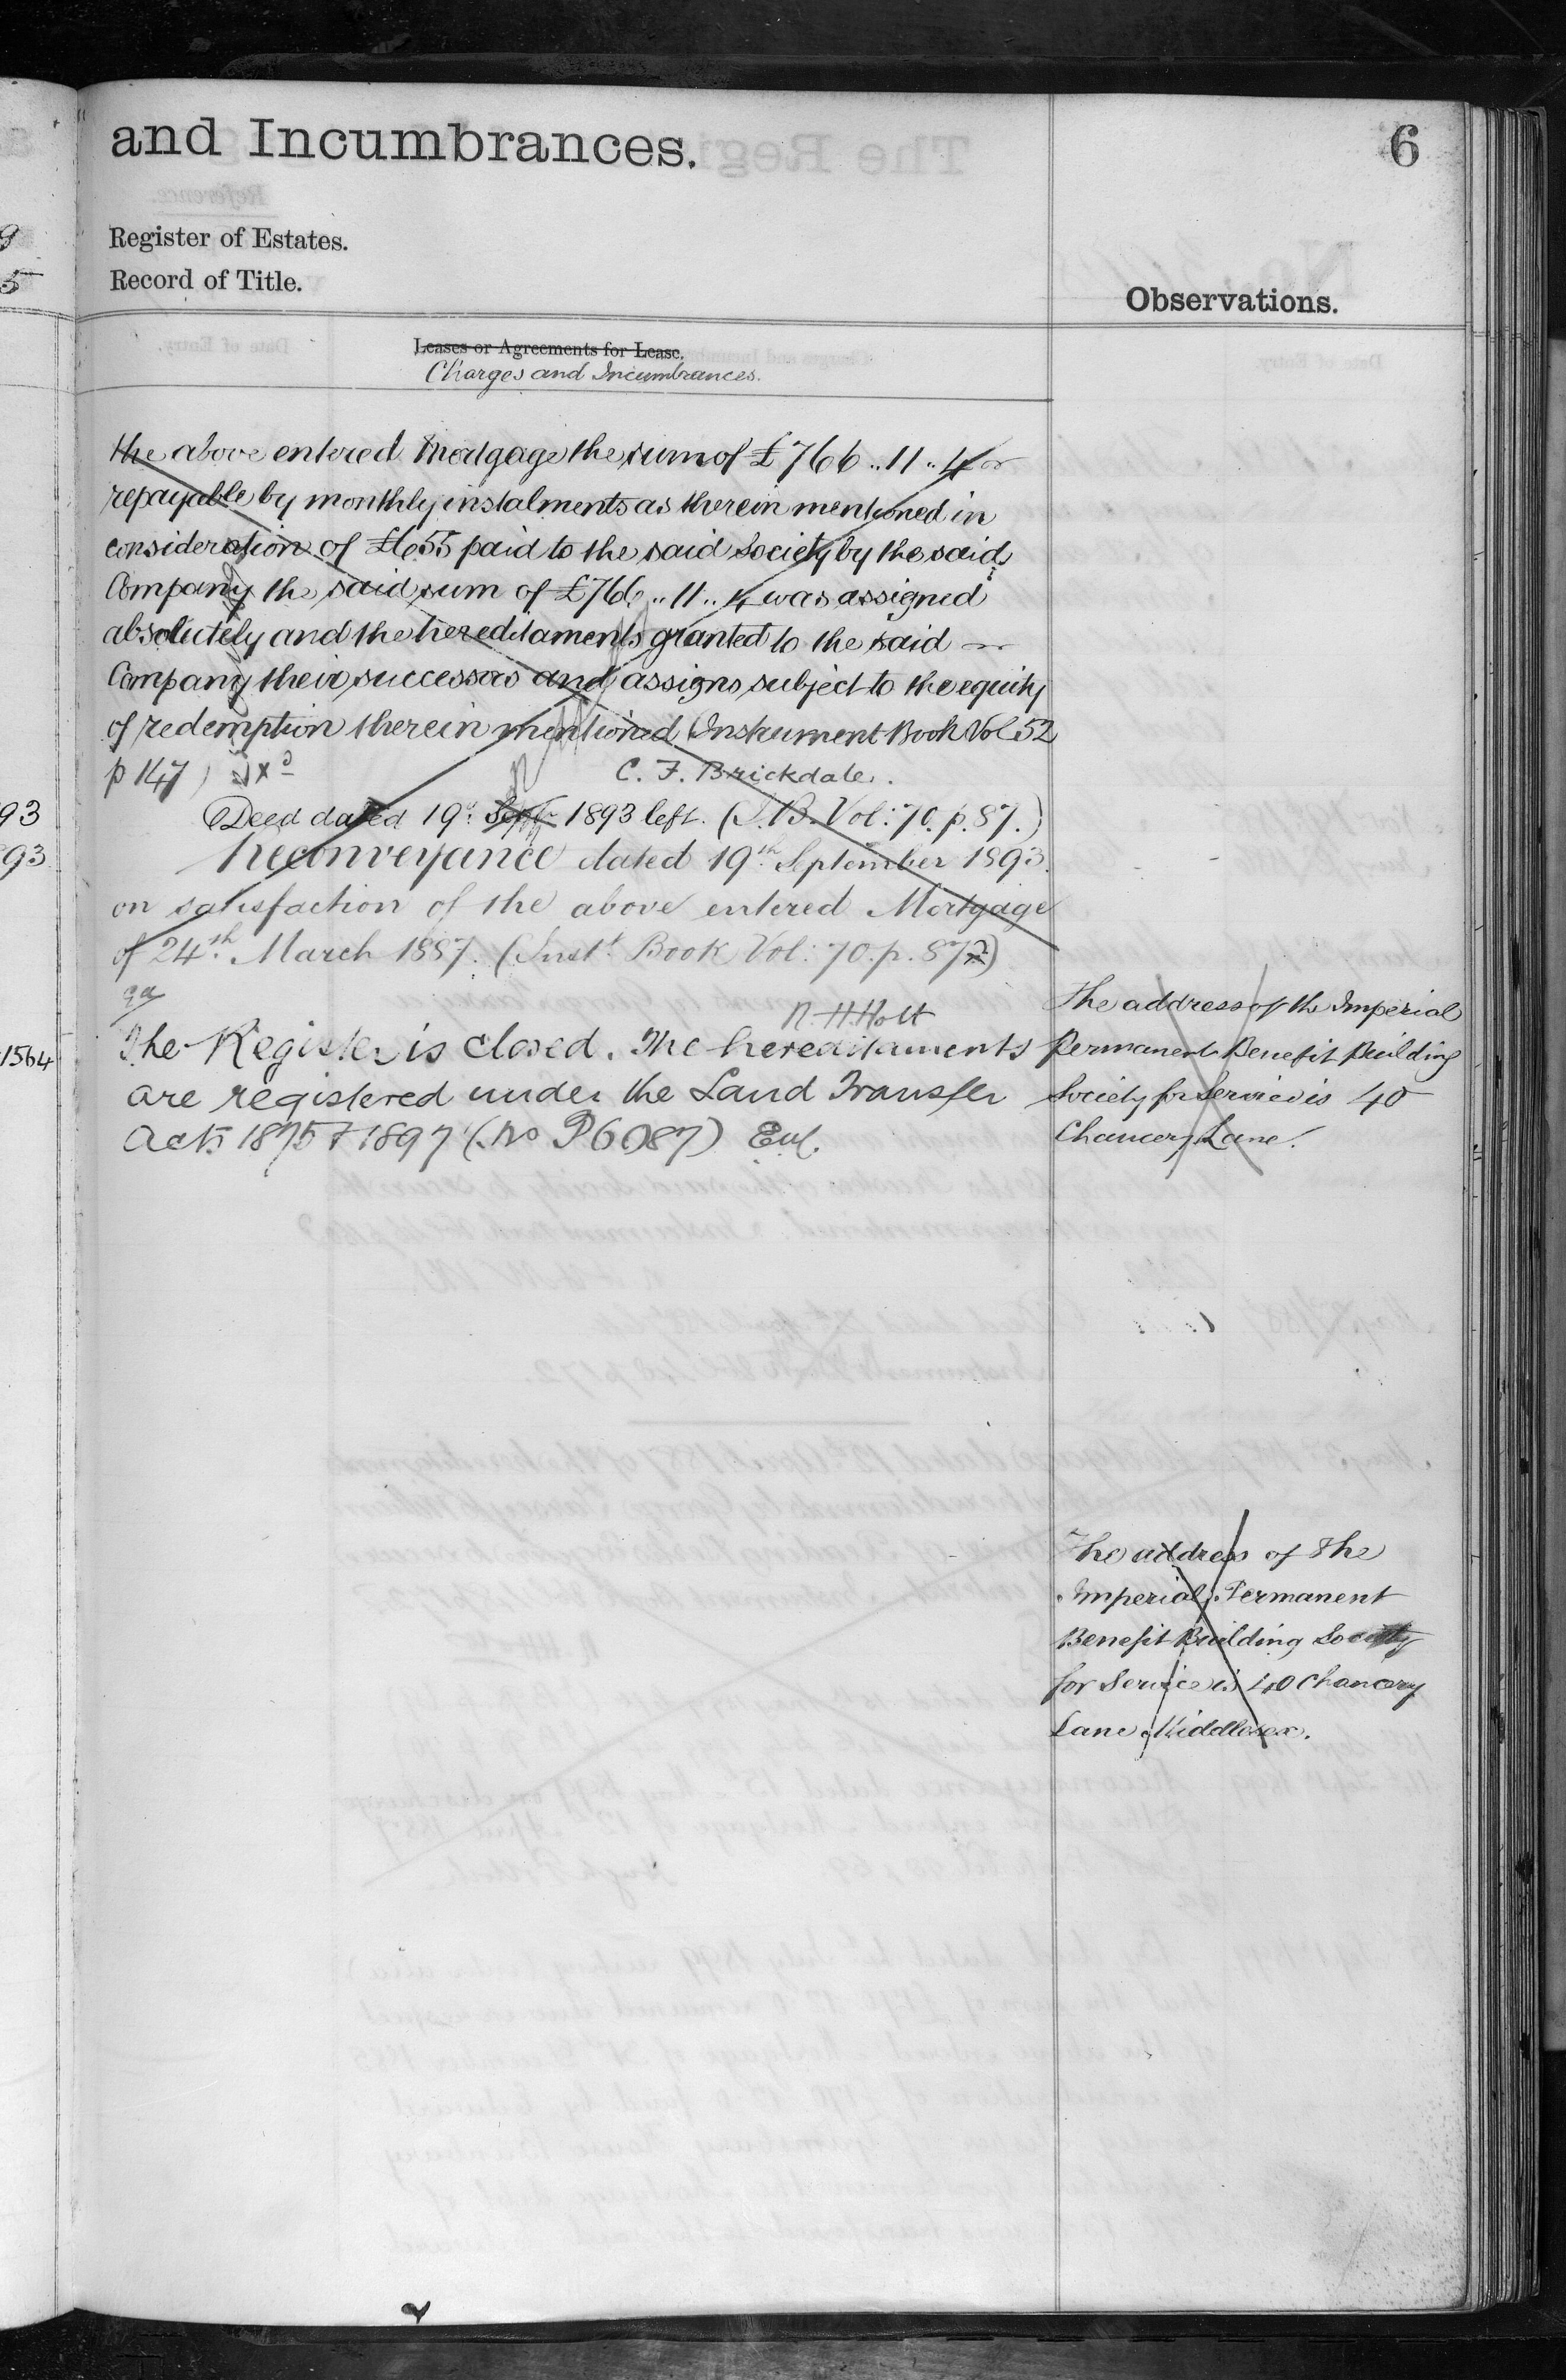 and Incumbrances.
6
Register of Estates.
Record of Title.
Observations.
Leases or Agreements for Lease.
Charges and Incumbrances.
the above entered Mortgage the sum of £766..11..4
repayable by monthly instalments as therein mentioned in
consideration of £655 paid to the said Society by the said
Company the said sum of £766..11..4 was assigned
absolutely and the hereditaments granted to the said
Company their successors and assigns subject to the equity
of redemption therein mentioned (Instrument Book Vol 52
p 147)
C. F. Brickdale.
93
Deed dated 19th Sept 1893 left. (I.B. Vol: 70. p. 87.)
93
Reconveyance dated 19th September 1893.
on satisfaction of the above entered Mortgage
of 24th March 1887. (Inst. Book Vol: 70. p. 87)
N. H. Holt
1564
The Register is closed. The hereditaments
are registered under the Land Transfer
Acts 1875 & 1897 (No P6087)
The address of the Imperial
Permanent Benefit Building
Society for Service is 40
Chancery Lane.
The address of the
Imperial Permanent
Benefit Building Society
for Service is 40 Chancery
Lane Middlesex.